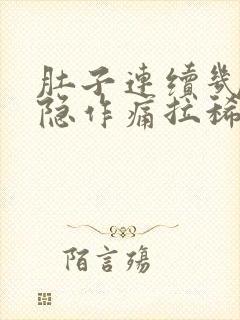 肚子連續幾
隐作痛拉稀
陌言殤